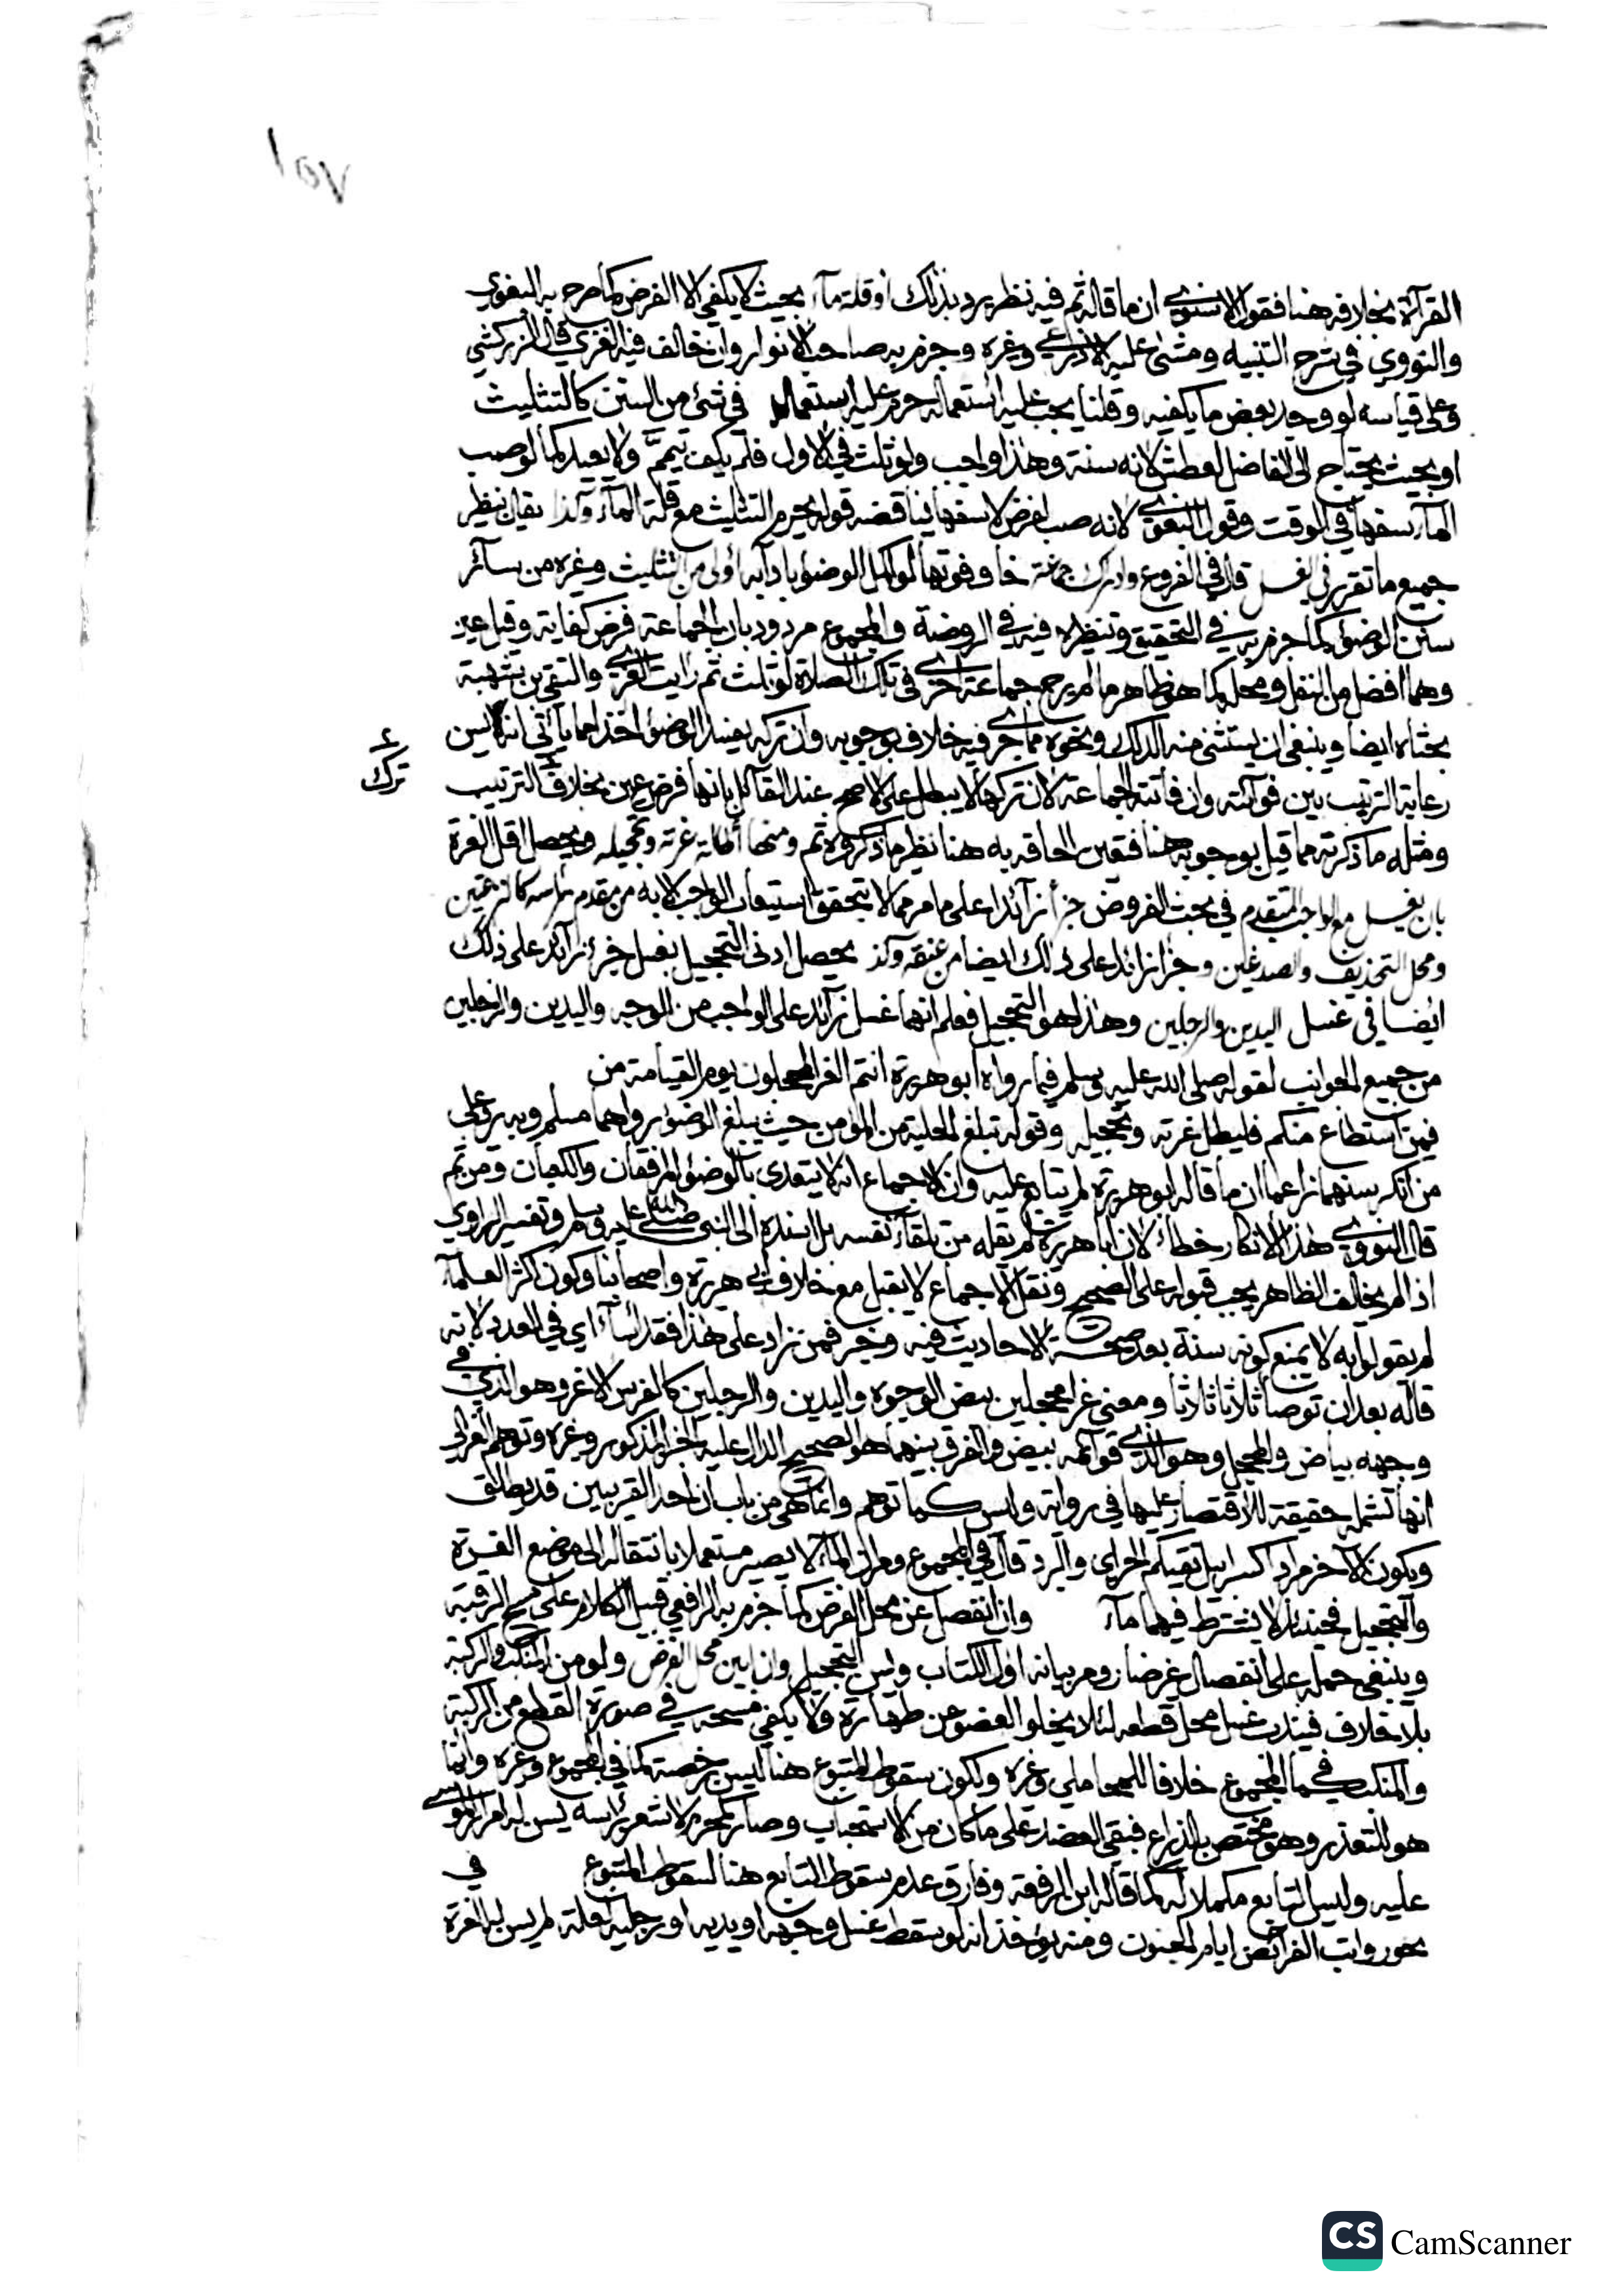 ١٥٧
القرآة بخلافه هنا فقول الاسنوي ان ما قاله ثم فيه نظر يرد بذلك او قلة مآء بحيث لا يكفي الا الفرض كما صرح به البغوي
والنووي في شرح التنبيه ومشى عليه الاذرعي وغيره وجزم به صاحب الانوار وان خالف فيه الغزي قال الزركشي
وعلى قياسه لو وجد بعض ما يكفيه وقلنا يجب عليه استعماله حرم عليه استعماله في شئ من السنن كالتثليث
او بحيث يحتاج الى الفاضل لعطش لانه سنة وهذا واجب ولو ثلث في الاول فلم يكف تيمم ولا يعيد كما لو صب
المآء سفها في الوقت وقول البغوي لانه صب لغرض لا سفها يناقضه قوله يحرم التثليث مع قلة المآء وكذا يقال بنظير
جميع ما تقرر في الغسل قال في الفروع وادراك جماعة خاف فوتها لو اكمل الوضوء بآدابه اولى من تثليث وغيره من سآئر
سنن الوضوء كما جزم به في التحقيق وتنظيره فيه في الروضة والمجموع مردود بان الجماعة فرض كفاية وقيل عين
وهما افضل من النفل ومحله كما هو ظاهر ما لم يرج جماعة اخرى في تلك الصلاة لو ثلث ثم رايت الغزي والتقي بن شهبة
بحثاه ايضا وينبغي ان يستثنى منه الدلك ونحوه مما جرى فيه خلاف بوجوبه وان تركه يفسد الوضوء اخذا مما يأتي انه ليس
ترك
رعاية الترتيب بين فوآئته وان فاتته الجماعة لان تركها لا يبطل على الاصح عند القآئل بانها فرض عين بخلاف الترتيب
ومثله ما ذكرته مما قيل بوجوبه هنا فتعين الحاقه به هنا نظير ما ذكروه ثم ومنها اطالة غرته وتحجيله ويحصل اقل الغرة
بان يغسل مع الواجب المتقدم في بحث الفروض جزأ زآئدا على ما مر مما لا يتحقق استيعاب الواجب الا به من مقدم راسه كالنزعتين
ومحل التحذيف والصدغين وجزا زائدا على ذلك ايضا من عنقه وكذا يحصل ادنى التحجيل بغسل جزء زآئد على ذلك
ايضا في غسل اليدين والرجلين وهذا هو التحجيل فعلم انهما غسل زآئد على الواجب من الوجه واليدين والرجلين
من جميع الجوانب لقوله صلى الله عليه وسلم فيما رواه ابو هريرة انتم الغر المحجلون يوم القيامة من
فمن استطاع منكم فليطل غرته وتحجيله وقوله تبلغ الحلية من المؤمن حيث يبلغ الوضوء رواهما مسلم وبه رد على
من انكر سنهما زاعما ان ما قاله ابو هريرة لم يتابع عليه وان الاجماع انه لا يتعدى بالوضوء المرفقان والكعبان ومن ثم
قال النووي هذا الانكار خطأ لان ابا هريرة لم يقله من تلقآء نفسه بل اسنده الى النبي صلى الله عليه وسلم وتفسير الراوي
اذا لم يخالف الظاهر يجب قبوله على الصحيح ونقل الاجماع لا يقبل مع خلاف ابي هريرة واصحابنا وكون اكثر العلمآء
لم يقولوا به لا يمنع كونه سنة بعد صحة الاحاديث فيه وخبر فمن زاد على هذا فقد اسآء اي في العدد لانه
قاله بعد ان توضأ ثلاثا ثلاثا ومعنى غرا محجلين بيض الوجوه واليدين والرجلين كالفرس الاغر وهو الذي في
وجهه بياض والمحجل وهو الذي قوآئمه بيض والفرق بينهما هو الصحيح الدال عليه الخبر المذكور وغيره وتوهم الغزالي
انها تشمله حقيقة للاقتصار عليها في رواية وليس كما توهم وانما هي من باب ان احد القريبين قد يطلق
ويكون الآخر مرادا كسرابيل تقيكم الحر اي والبرد قال في المجموع وطرق المآء لا يصير مستعملا بانتقاله الى موضع الغرة
والتحجيل فحينئذ لا يشترط فيهما مآء وان انفصل عن محل الفرض كما جزم به الرافعي قبيل الكلام على مسح الرقبة
وينبغي حمله على انفصال عرضا ومر بيانه اول الكتاب ويسن التحجيل وان ابين محل الفرض ولو من المنكب والركبة
بلا خلاف فيندب غسل محل قطعه لئلا يخلو العضو عن طهارة ولا يكفي مسحه في صورة القطع من الركبة
والمنكب كما في المجموع خلافا للمحاملي وغيره ولكون سقوط المتبوع هنا ليس رخصة كما في المجموع وغيره وانما
هو للتعذر وهو مختص بالذراع فبقي العضد على ما كان من الاستحباب وصار كمحرم لا شعر براسه يسن له امرار الموسى
عليه وليس التابع مكملا له كما قاله ابن الرفعة وفارق عدم سقوط التابع هنا لسقوط المتبوع في
نحو رواتب الفرآئض ايام الجنون ومنه يؤخذ انه لو سقط غسل وجهه او يديه او رجليه لعلة لم يسن له الغرة